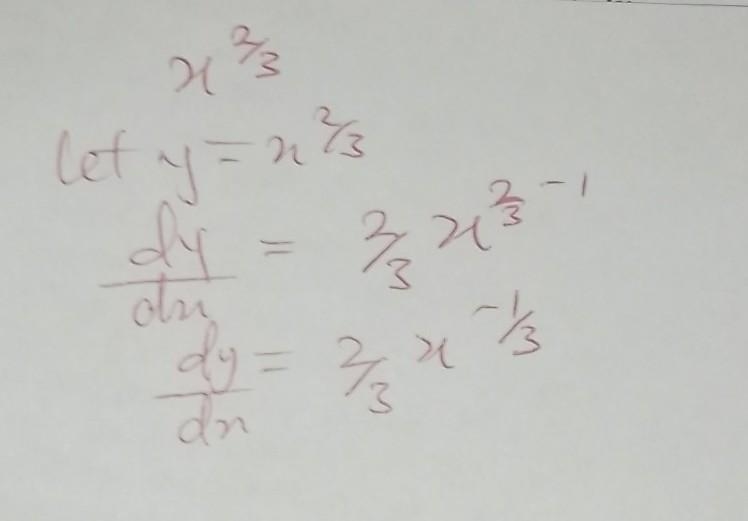 x^2/3
Let y = x^2/3
dy/dx = 2/3 x^2/3 - 1
dy/dx = 2/3 x^-1/3